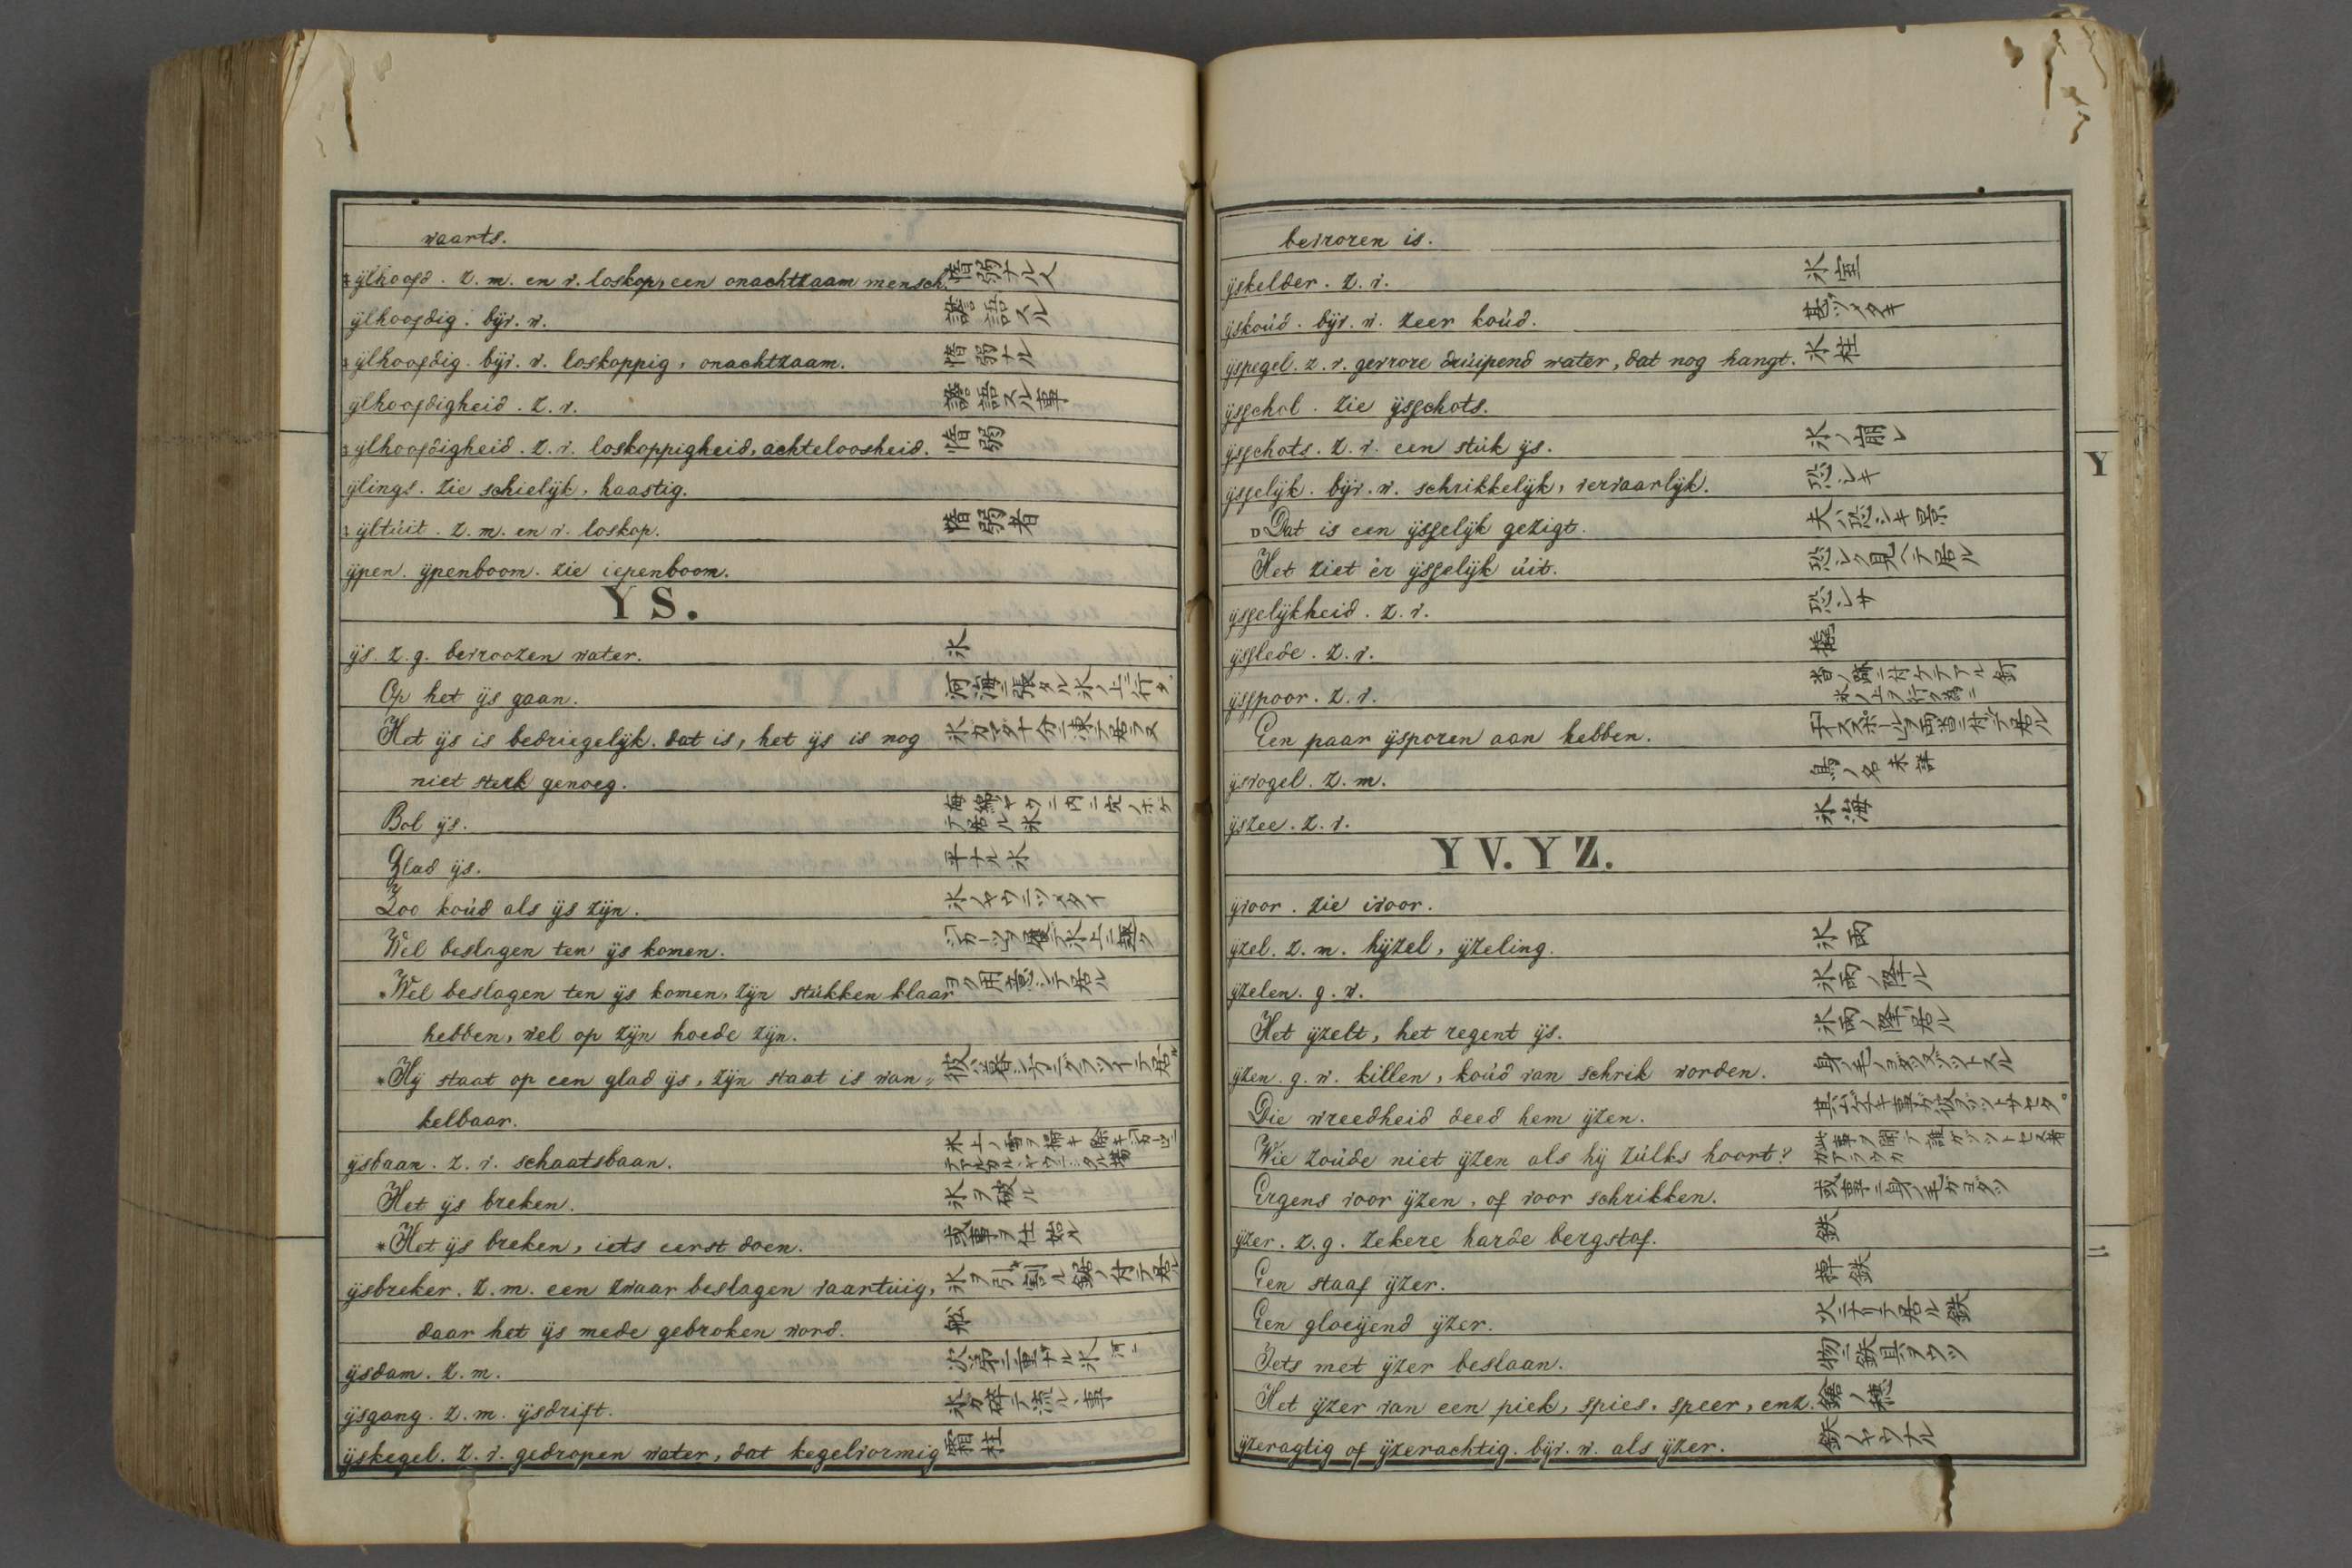 waarts.
ijlhoofd. z. m. en v. loskop, een onachtzaam mensch. 惰弱ナル人
ijlhoofdig. bijv. w. 譫語スル
ijlhoofdig. bijv. w. loskoppig, onachtzaam. 惰弱ナル
ijlhoofdigheid. z. v. 譫語スル事
ijlhoofdigheid. z. v. loskoppigheid, achteloosheid. 惰弱
ijlings. zie schielijk, haastig.
ijltúit. z. m. en v. loskop. 惰弱者
ijpen. ijpenboom. zie iepenboom.
Y S.
ijs. z. g. bevroozen water. 氷
Op het ijs gaan. 河海ニ張タル氷ノ上ニ行ク
Het ijs is bedriegelijk. dat is, het ijs is nog 氷ガマダ十分ニ凍テ居ラヌ
niet sterk genoeg.
Bol ijs. 海綿ノヤウニ内ニ穴ノホゲテ居ル氷
Glad ijs. 平ナル氷
Zoo koúd als ijs zijn. 氷ノヤウニツメタイ
Wel beslagen ten ijs komen.
*Wel beslagen ten ijs komen, zijn stúkken klaar ヨク用意シテ居ル
hebben, wel op zijn hoede zijn.
*Hij staat op een glad ijs, zijn staat is wan„
kelbaar.
ijsbaan. z. v. schaatsbaan.
Het ijs breken. 氷ヲ破ル
*Het ijs breken, iets eerst doen. 或事ヲ仕始ル
ijsbreker. z. m. een zwaar beslagen vaartúig, 氷ヲ引割ル鋸ノ付テ居ル
daar het ijs mede gebroken word. 舩
ijsdam. z. m. 次第ニ重ナル氷
ijsgang. z. m. ijsdrift. 氷ガ碎テ流ル事
ijskegel. z. v. gedropen water, dat kegelvormig 霜柱
bevroren is.
ijskelder. z. v. 氷室
ijskoúd. bijv. w. zeer koúd. 甚ツメタキ
ijspegel. z. v. gevrore drúipend water, dat nog hangt. 氷柱
ijsschol. zie ijsschots.
ijsschots. z. v. een stúk ijs. 氷ノ崩レ
ijsselijk. bijv. w. schrikkelijk, vervaarlijk. 恐シキ
Dat is een ijsselijk gezigt. 夫ハ恐シキ景
Het ziet ér ijsselijk úit. 恐シク見ヘテ居ル
ijsselijkheid. z. v. 恐シサ
ijsslede. z. v. 橇
ijsspoor. z. v. 沓ノ踵ニ付ケテアル釘 氷ノ上ヲ行ク為ニ
Een paar ijsporen aan hebben.
ijsvogel. z. m. 鳥ノ名未詳
ijszee. z. v. 氷海
Y V. Y Z.
ijvoor. zie ivoor.
ijzel. z. m. hijzel, ijzeling. 氷雨
ijzelen. g. w. 氷雨ノ降ル
Het ijzelt, het regent ijs. 氷雨ノ降テ居ル
ijzen. g. w. killen, koúd van schrik worden.
Die wreedheid deed hem ijzen.
Wie zoúde niet ijzen als hij zúlks hoort?
Ergens voor ijzen, of voor schrikken. 或事ニ身ノ毛ガヨダツ
ijzer. z. g. zekere harde bergstof. 鉄
Een staaf ijzer. 棹鉄
Een gloeijend ijzer. 火ニナリテ居ル鉄
Iets met ijzer beslaan. 物ニ鉄具ヲウツ
Het ijzer van een piek, spies, speer, enz. 鎗ノ穂
ijzeragtig of ijzerachtig. bijv. w. als ijzer. 鉄ノヤウナル
Y